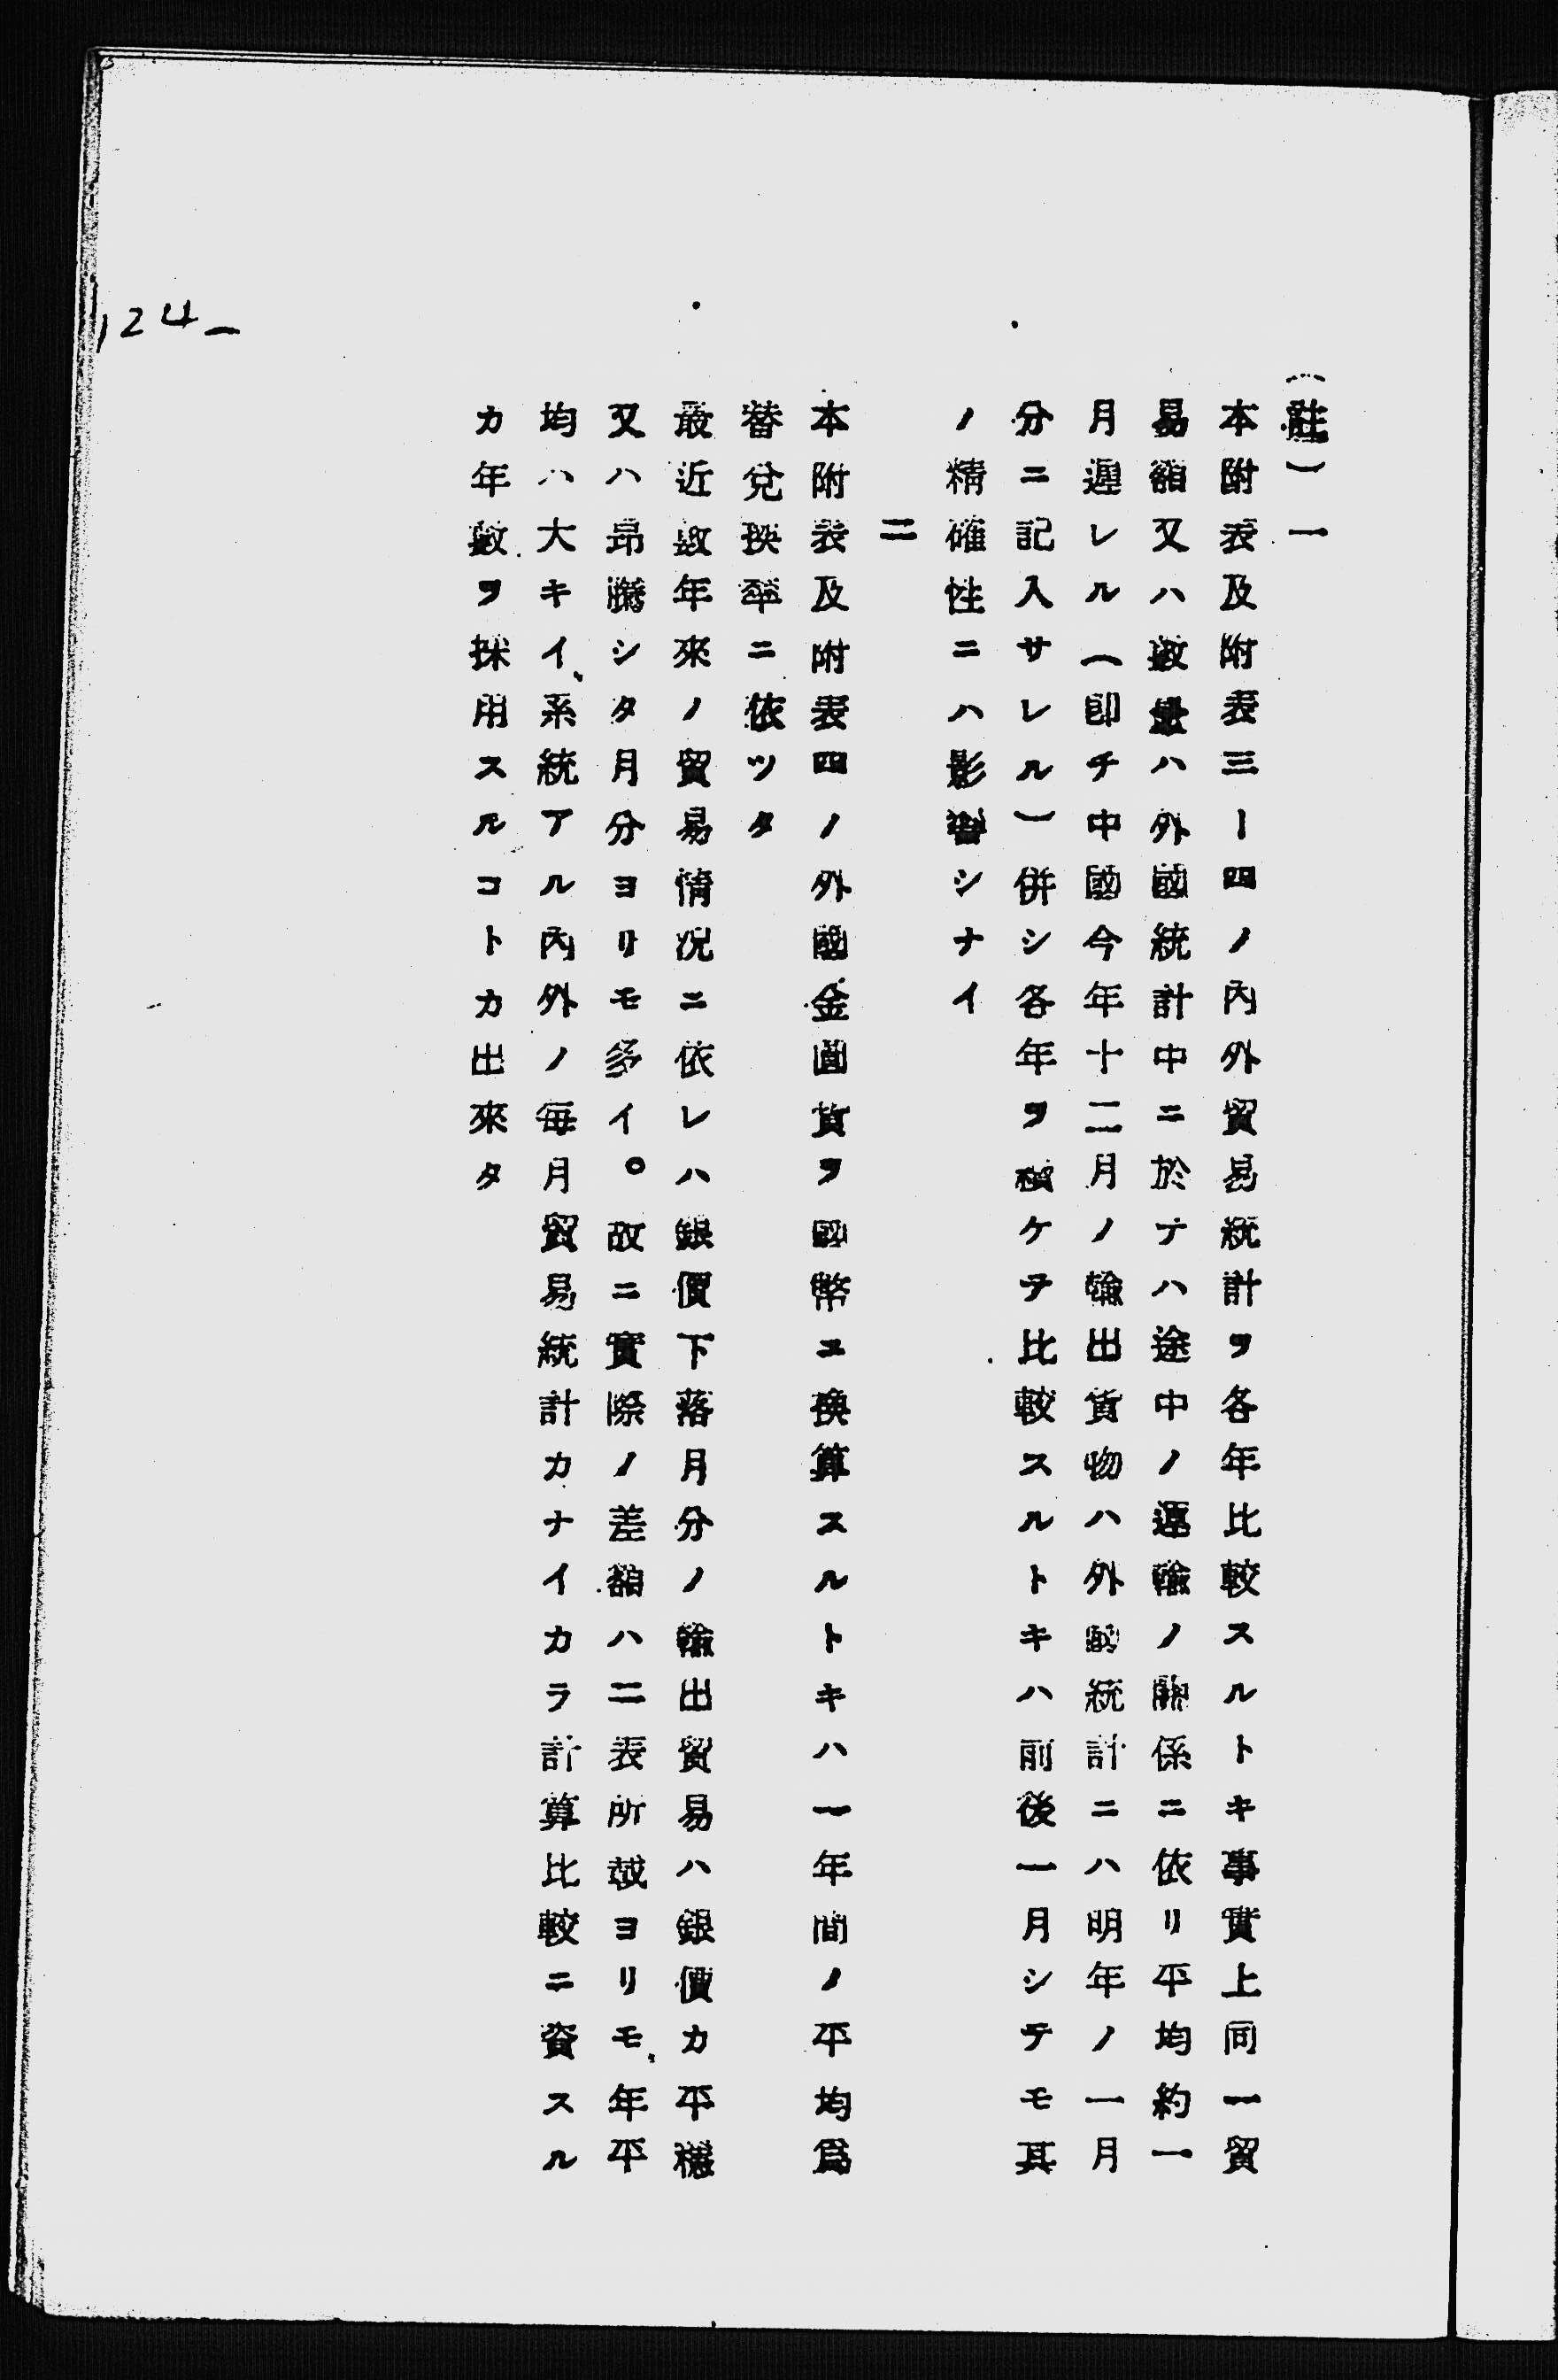 （註）一
本附表及附表三ー四ノ內外貿易統計ヲ各年比較スルトキ事實上同一貿
易額又ハ數量ハ外國統計中ニ於テハ途中ノ運輸ノ關係ニ依リ平均約一
月遲レル（卽チ中國今年十二月ノ輸出貨物ハ外國統計ニハ明年ノ一月
分ニ記入サレル）併シ各年ヲ續ケテ比較スルトキハ前後一月シテモ其
ノ精確性ニハ影響シナイ
二
本附表及附表四ノ外國金圓貨ヲ國幣ニ換算スルトキハ一年間ノ平均爲
替兌換率ニ依ツタ
最近數年來ノ貿易情況ニ依レハ銀價下落月分ノ輸出貿易ハ銀價カ平穩
又ハ昂騰シタ月分ヨリモ多イ。故ニ實際ノ差額ハ二表所載ヨリモ、年平
均ハ大キイ、系統アル內外ノ每月貿易統計カナイカラ計算比較ニ資スル
カ年數ヲ採用スルコトカ出來タ
124